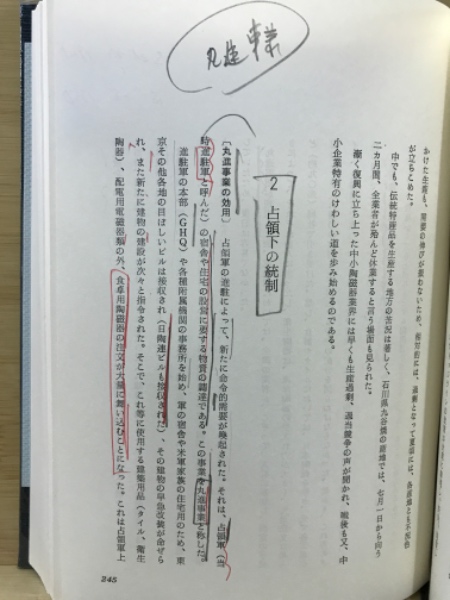 かけた生産も、需要の伸びが伴わないため、相対的には、過剰となって
が立ちとめた。
中でも、伝統特産品を生産する地方の苦況は著しく、石川県九谷焼の産地では、七月一日から向う
二カ月間、全業者が殆んど休業すると言う場面も見られた。
漸く復興に立ち上った中小陶磁器業界には早くも生産過剰、過当競争の声が聞かれ、戦後も又、中
小企業特有のけわしい道を歩み始めるのである。
2 占領下の統制
〔丸進事業の効用〕 占領軍の進駐によって、新たに命令的需要が喚起された。それは、占領軍（当
時進駐軍と呼んだ）の宿舎や住宅の設営に要する物資の調達である。この事業を丸進事業と称した。
進駐軍の本部（GHQ）や各種所属機関の事務所を始め、軍の宿舎や米軍家族の住宅用のため、東
京その他各地の目ほしいビルは接収され（日陶連ビルも接収された）、その建物の早急改装が命ぜら
れ、また新たに建物の建設が次々と指令された。そこで、これ等に使用する建築用品（タイル、衛生
陶器）、配電用電磁器類の外、食卓用陶磁器の注文が大量に舞い込むことになった。これは占領軍上
245